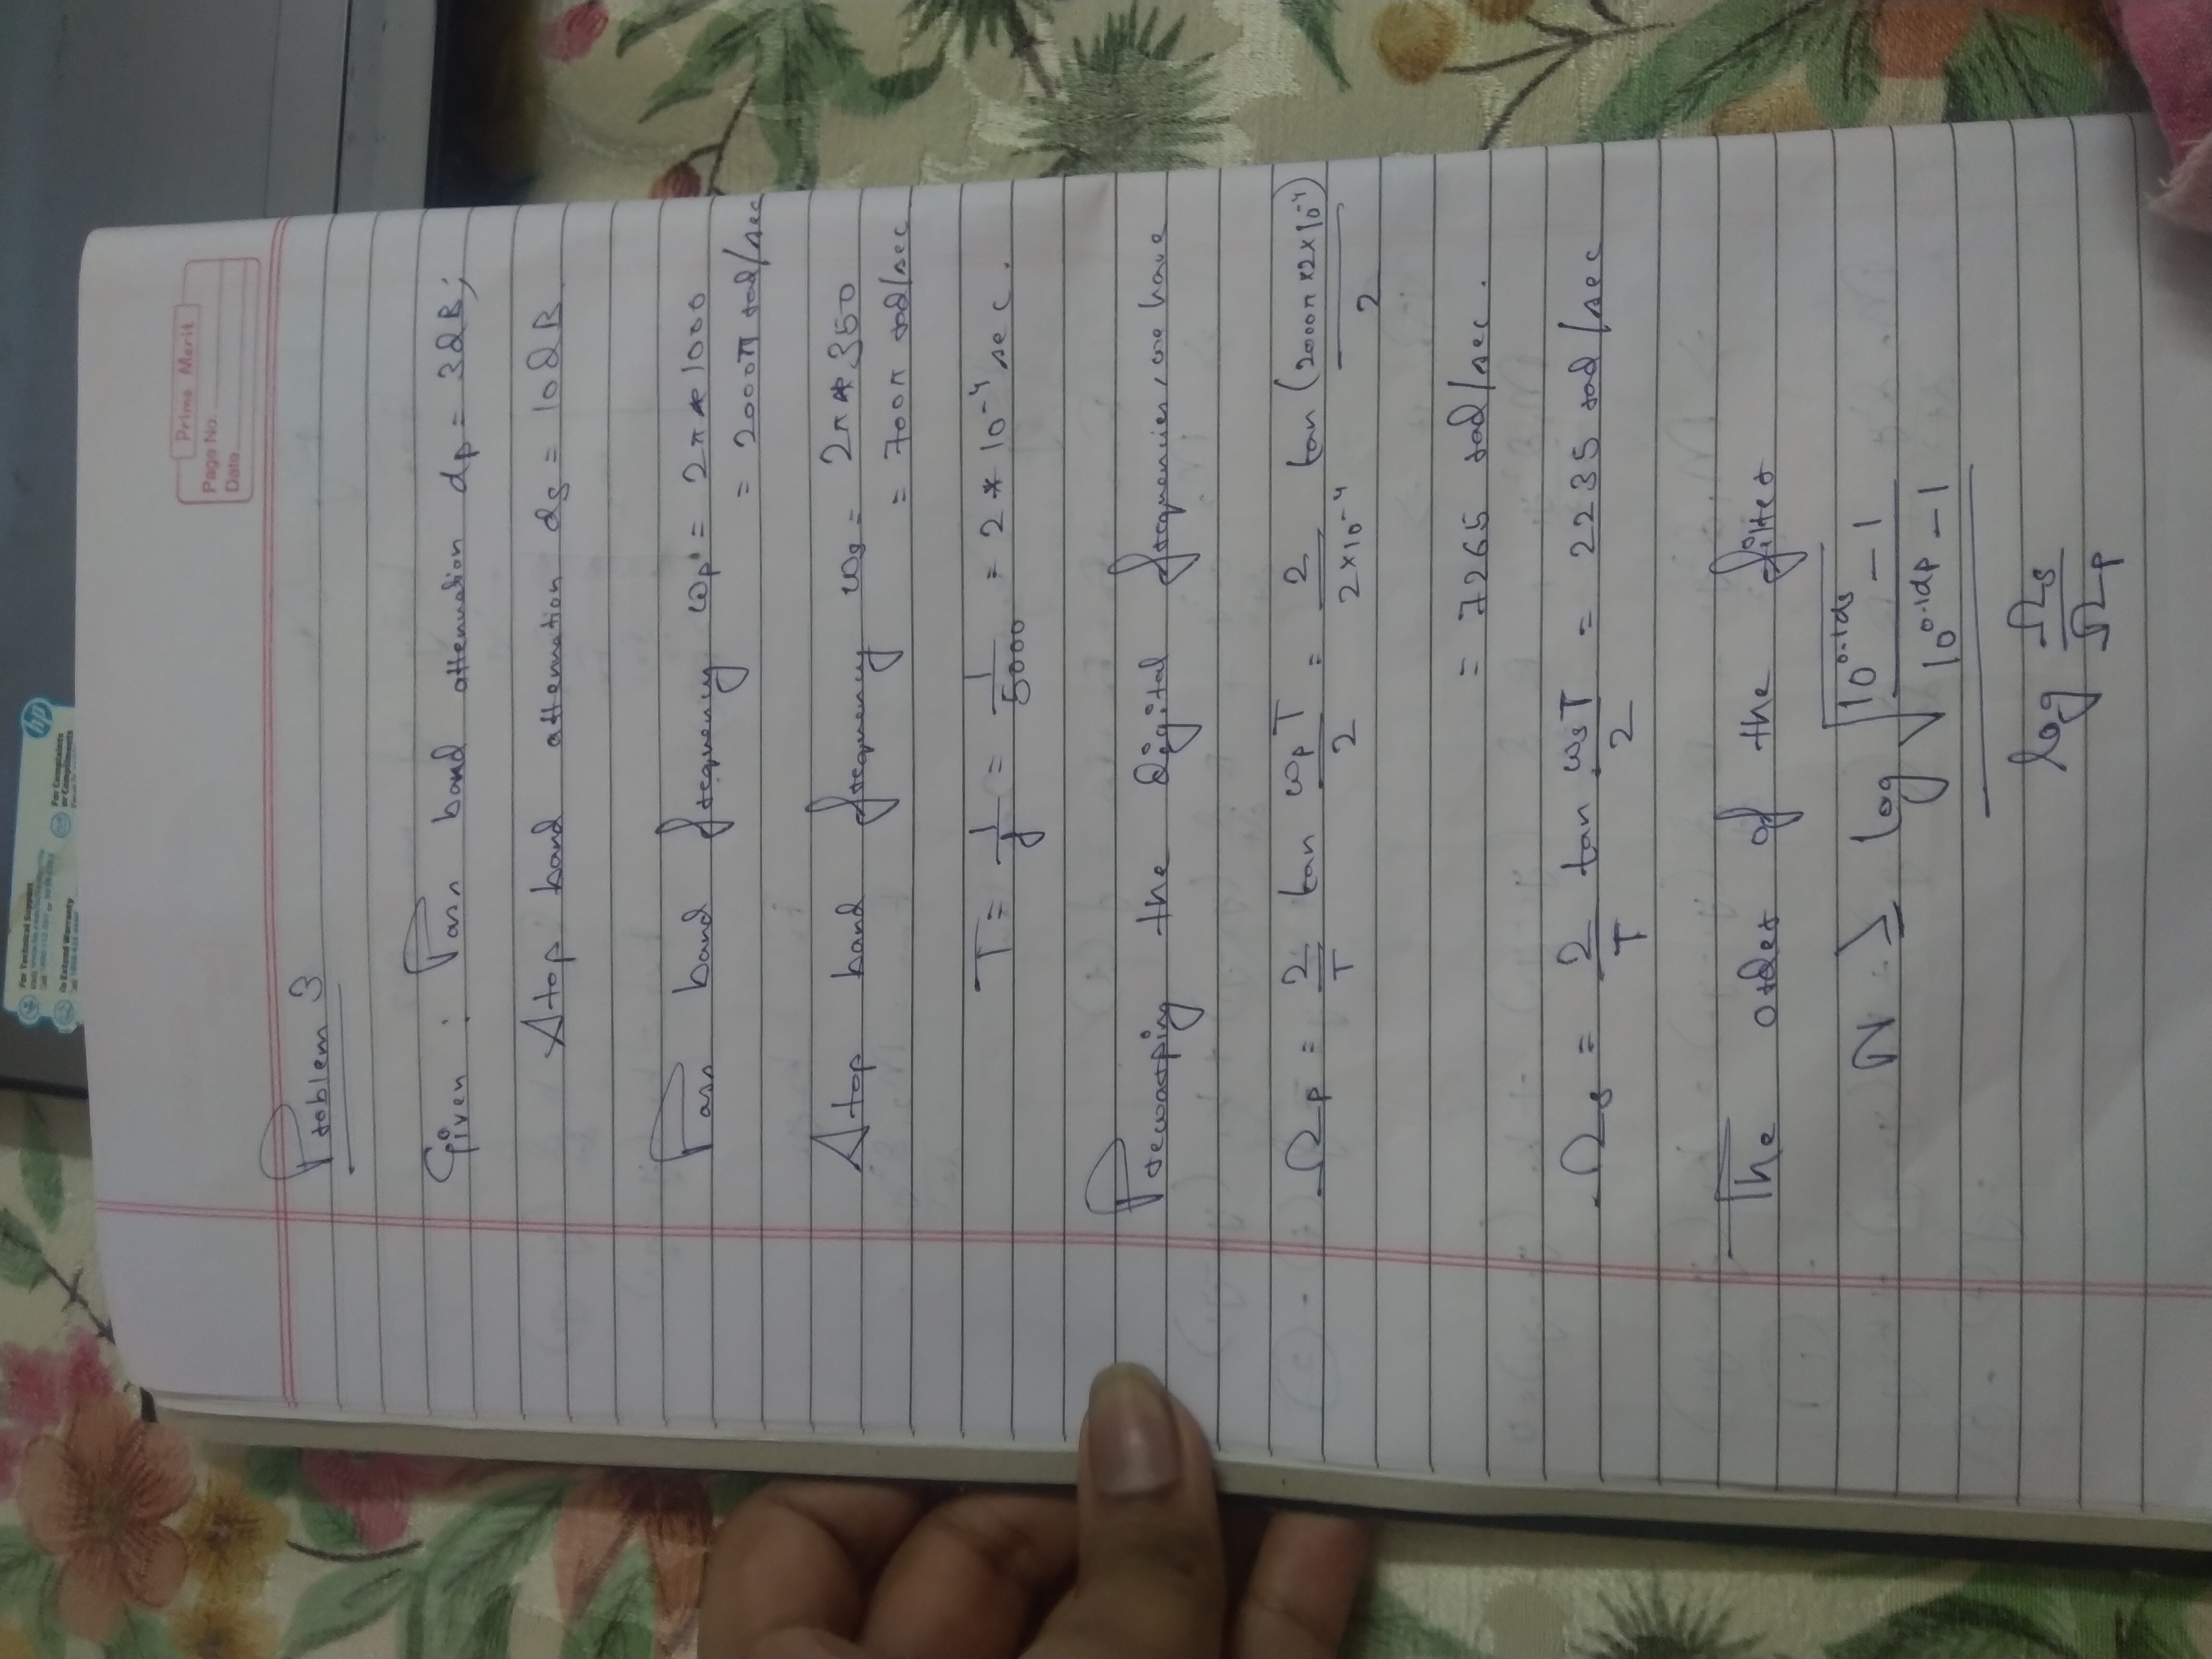 Prime Merit
Page No.
Date
Problem 3
Given : Pass band attenuation dp = 3dB;
Stop band attenuation ds = 10dB
Pass band frequency ωp = 2π*1000
= 2000π rad/sec
Stop band frequency ωs = 2π*350
= 700π rad/sec
T = 1/f = 1/5000 = 2*10⁻⁴ sec.
Prewarping the digital frequencies, we have
Ωp = 2/T tan ωpT/2 = 2/2×10⁻⁴ tan (2000π×2×10⁻⁴)/2
= 7265 rad/sec.
Ωs = 2/T tan ωsT/2 = 2235 rad/sec
The order of the filter
N ≥ log √(10^0.1ds − 1 / 10^0.1dp − 1)
log Ωs/Ωp
For Technical Support
To Extend Warranty
For Complaints
hp